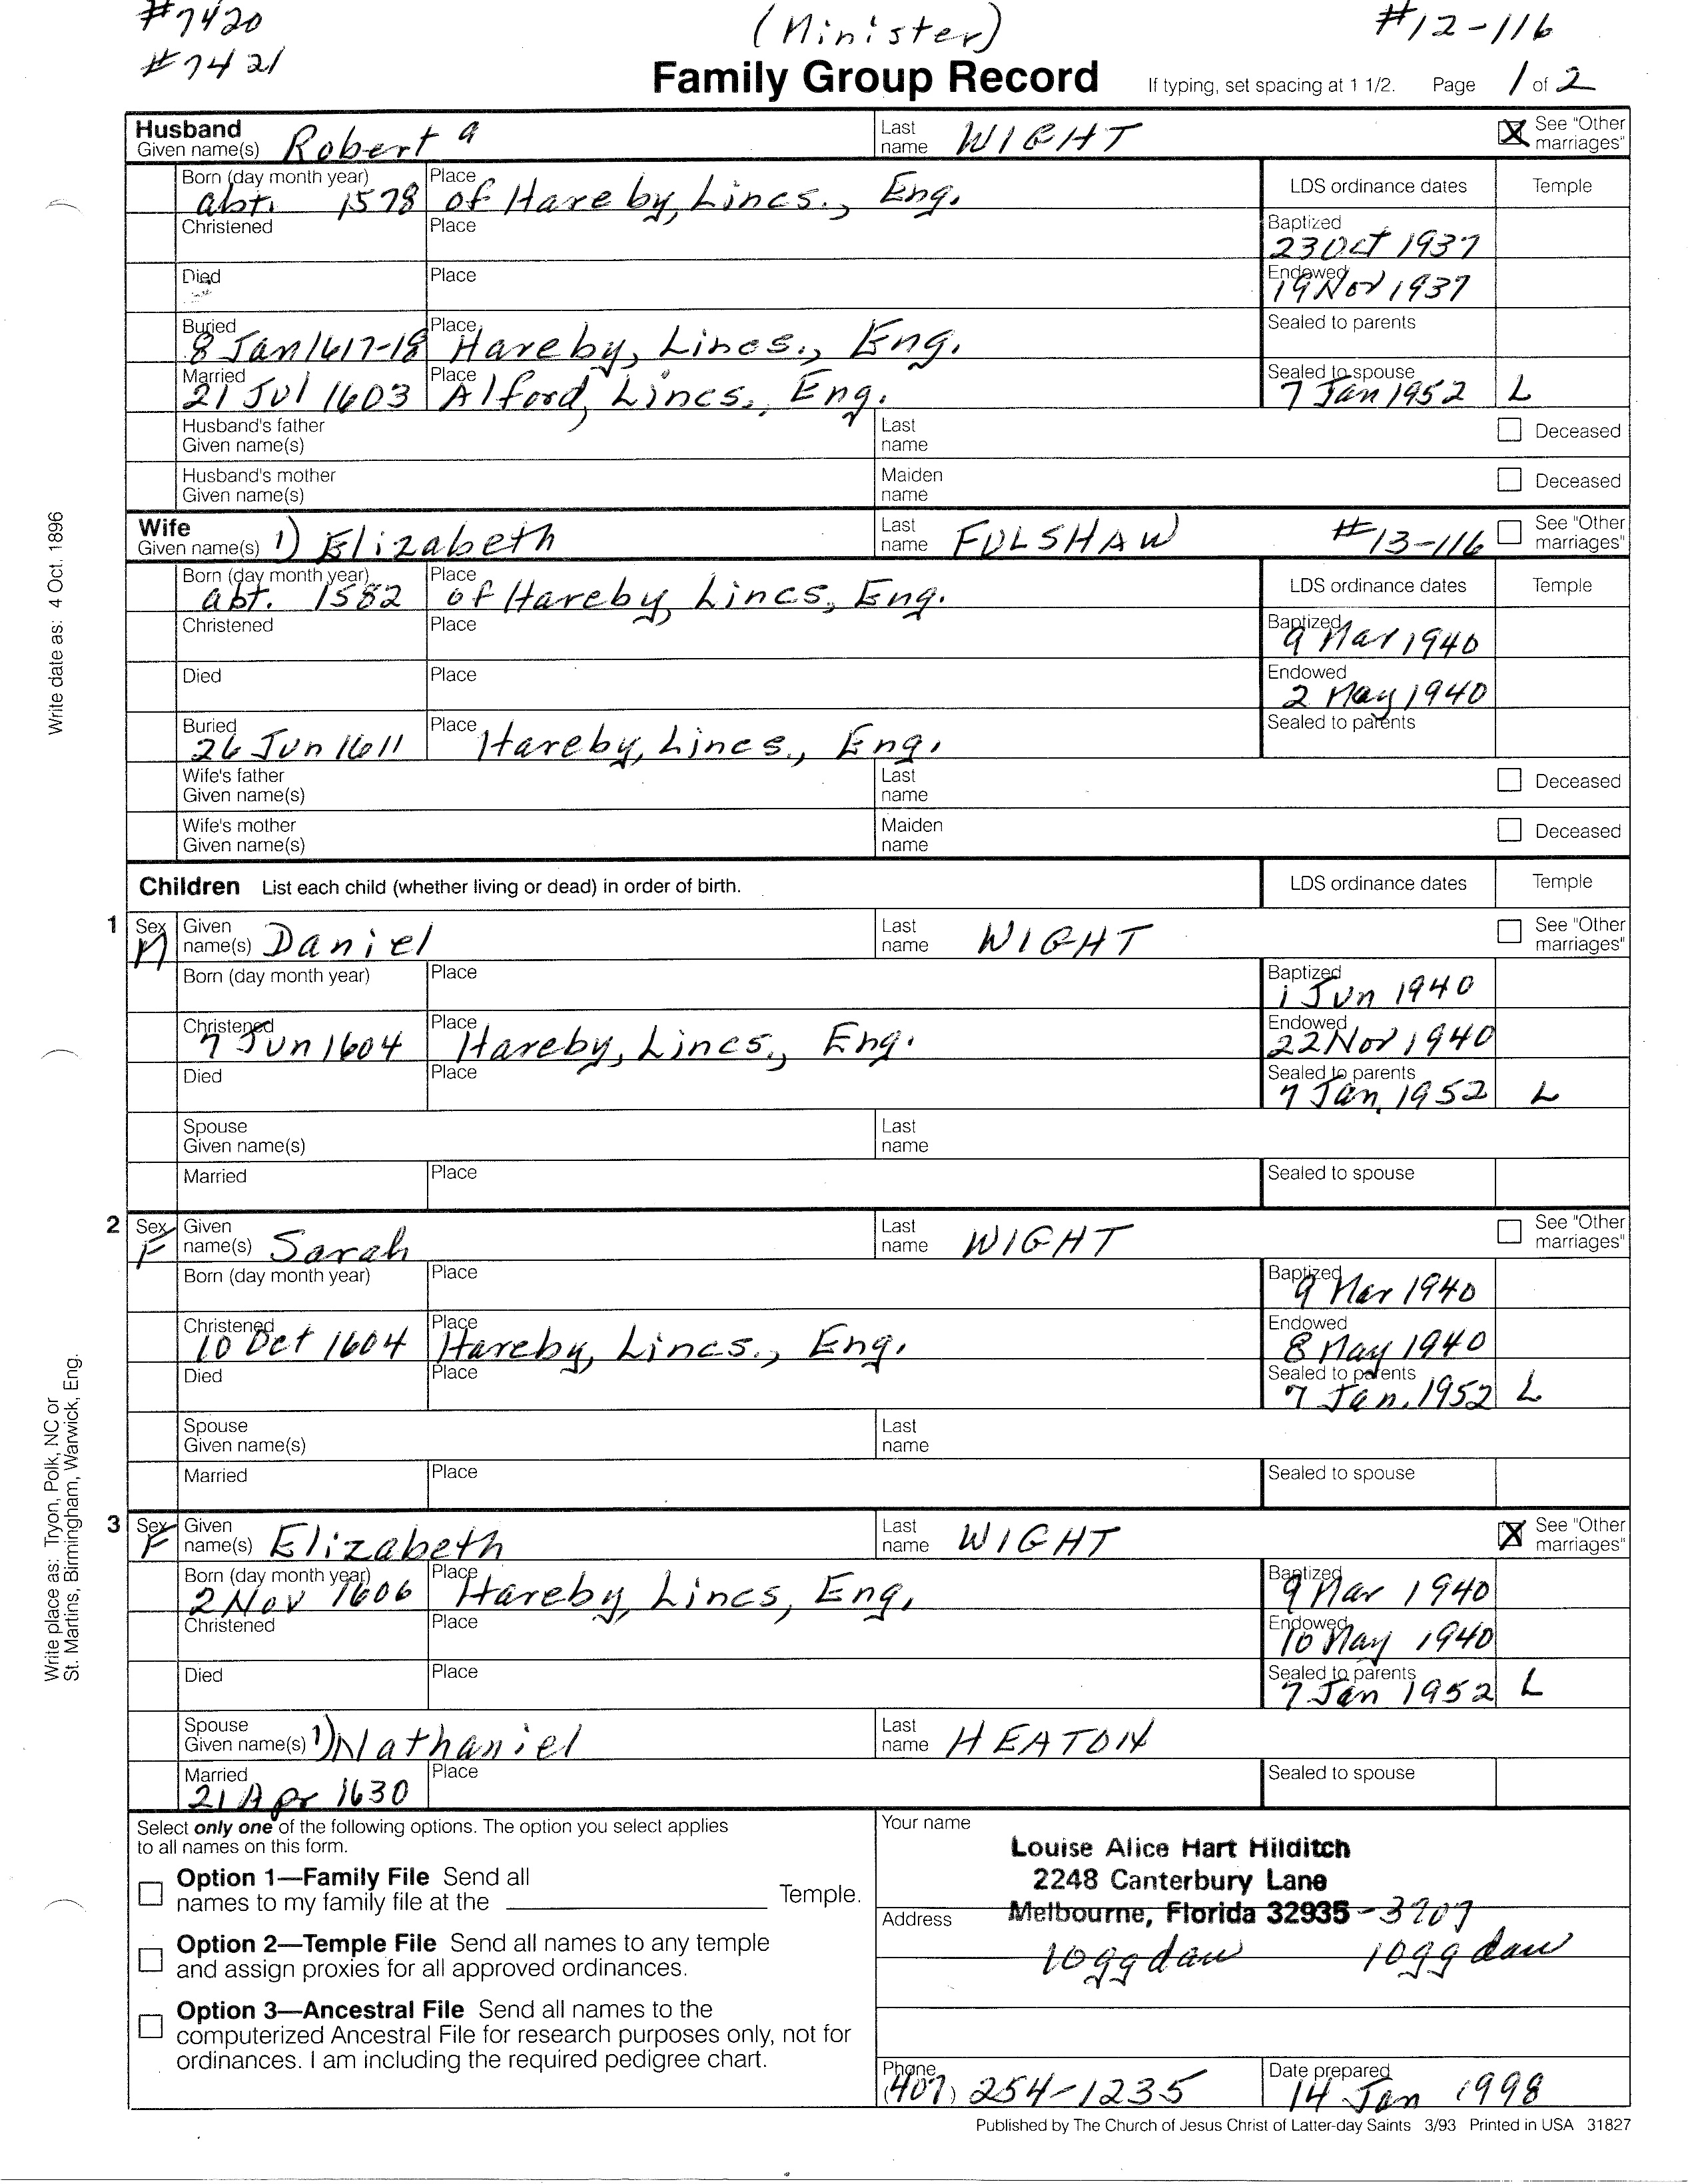 #7420 (Minister) #12-116
#7421
Family Group Record If typing, set spacing at 1 1/2. Page 1 of 2
Husband
Given name(s) Robert 9 Last name WIGHT ☒ See "Other marriages"
Born (day month year) abt. 1578 Place of Hareby, Lincs., Eng. LDS ordinance dates Temple
Christened Place Baptized 23 Oct 1937
Died Place Endowed 19 Nov 1937
Buried 8 Jan 1617-18 Place Hareby, Lincs., Eng. Sealed to parents
Married 21 Jul 1603 Place Alford, Lincs., Eng. Sealed to spouse 7 Jan 1952 L
Husband's father Given name(s) Last name ☐ Deceased
Husband's mother Given name(s) Maiden name ☐ Deceased
Wife
Given name(s) 1) Elizabeth Last name FULSHAW #13-116 ☐ See "Other marriages"
Born (day month year) abt. 1582 Place of Hareby, Lincs, Eng. LDS ordinance dates Temple
Christened Place Baptized 9 Mar 1940
Died Place Endowed 2 May 1940
Buried 26 Jun 1611 Place Hareby, Lincs., Eng. Sealed to parents
Wife's father Given name(s) Last name ☐ Deceased
Wife's mother Given name(s) Maiden name ☐ Deceased
Children List each child (whether living or dead) in order of birth. LDS ordinance dates Temple
1 Sex M Given name(s) Daniel Last name WIGHT ☐ See "Other marriages"
Born (day month year) Place Baptized 1 Jun 1940
Christened 7 Jun 1604 Place Hareby, Lincs., Eng. Endowed 22 Nov 1940
Died Place Sealed to parents 7 Jan. 1952 L
Spouse Given name(s) Last name
Married Place Sealed to spouse
2 Sex F Given name(s) Sarah Last name WIGHT ☐ See "Other marriages"
Born (day month year) Place Baptized 9 Mar 1940
Christened 10 Oct 1604 Place Hareby, Lincs., Eng. Endowed 8 May 1940
Died Place Sealed to parents 7 Jan. 1952 L
Spouse Given name(s) Last name
Married Place Sealed to spouse
3 Sex F Given name(s) Elizabeth Last name WIGHT ☒ See "Other marriages"
Born (day month year) 2 Nov 1606 Place Hareby, Lincs, Eng. Baptized 9 Mar 1940
Christened Place Endowed 10 May 1940
Died Place Sealed to parents 7 Jan 1952 L
Spouse Given name(s) 1) Nathaniel Last name HEATON
Married 21 Apr 1630 Place Sealed to spouse
Select only one of the following options. The option you select applies
to all names on this form.
☐ Option 1—Family File Send all
names to my family file at the ____ Temple.
☐ Option 2—Temple File Send all names to any temple
and assign proxies for all approved ordinances.
☐ Option 3—Ancestral File Send all names to the
computerized Ancestral File for research purposes only, not for
ordinances. I am including the required pedigree chart.
Your name
Louise Alice Hart Hilditch
2248 Canterbury Lane
Address Melbourne, Florida 32935-3907
10gg dau 10gg dau
Phone (407) 254-1235 Date prepared 14 Jan 1998
Published by The Church of Jesus Christ of Latter-day Saints 3/93 Printed in USA 31827
Write date as: 4 Oct. 1896
Write place as: Tryon, Polk, NC or
St. Martins, Birmingham, Warwick, Eng.